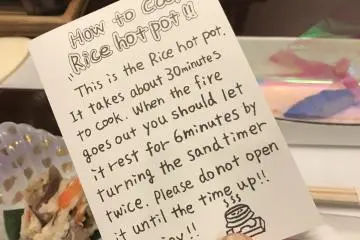 How to Cook
"Rice hot pot!!
This is the Rice hot pot.
It takes about 30minutes
to cook. When the fire
goes out you should let
it rest for 6minutes by
turning the sandtimer
twice. Please do not open
it until the time up!!